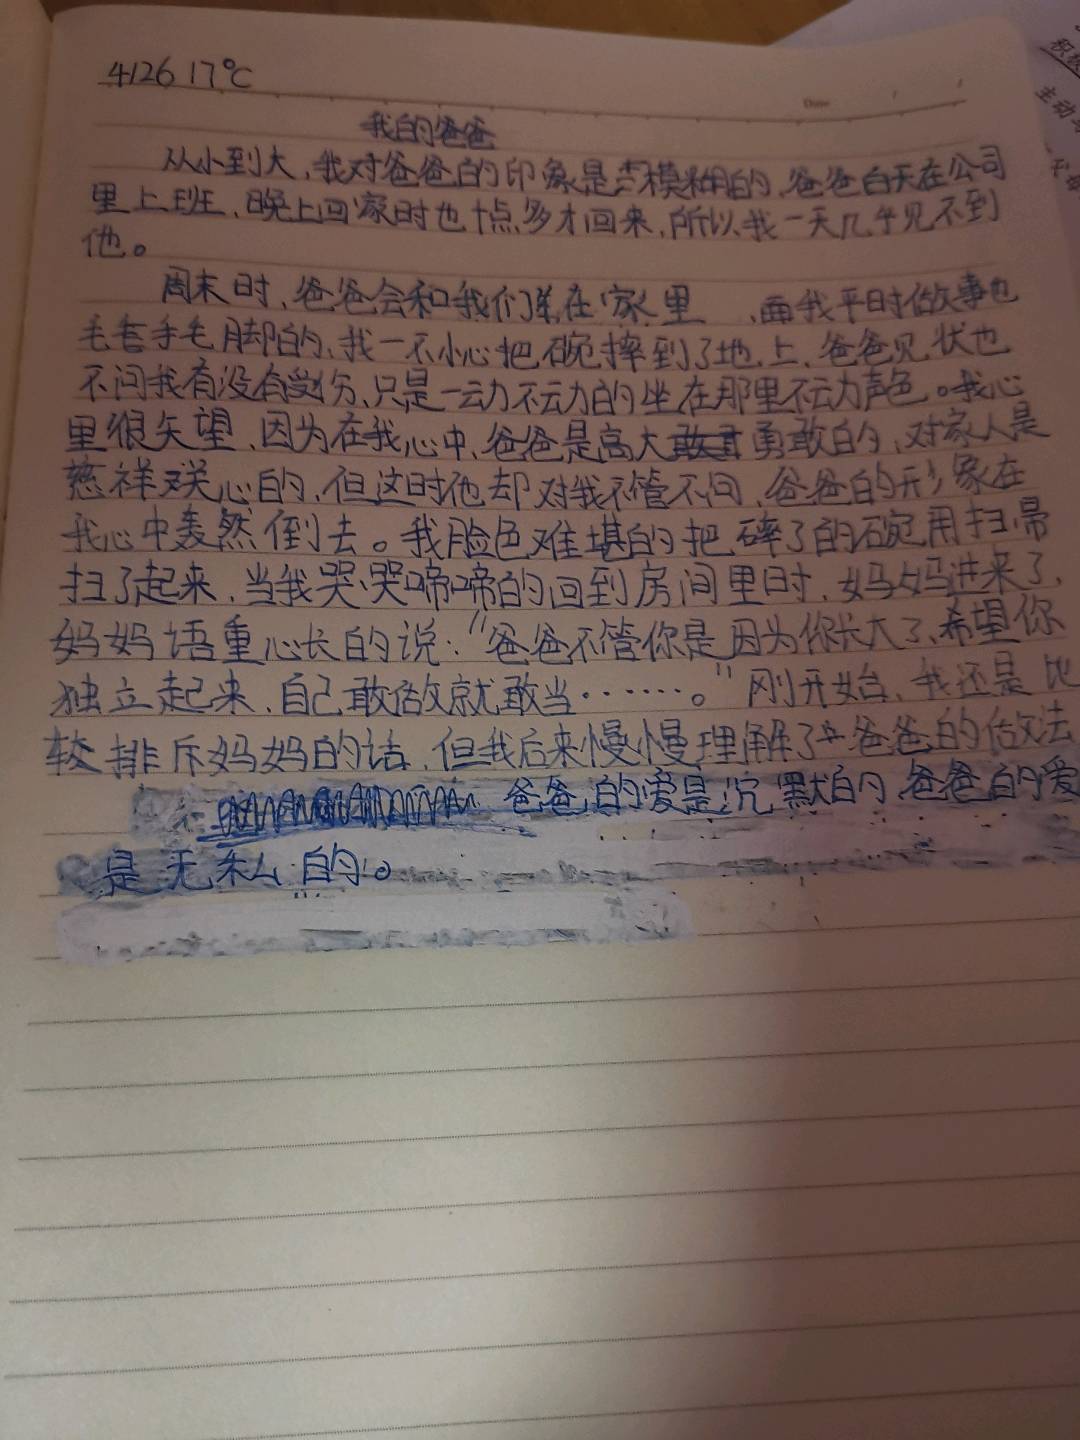 4126 17℃
Date
我的爸爸
从小到大,我对爸爸的印象是模糊的,爸爸白天在公司
里上班,晚上回家时也十点多才回来,所以我一天几乎见不到
他。
周末时,爸爸会和我们呆在家里,而我平时做事也
毛毛手毛脚的,我一不小心把碗摔到了地上,爸爸见状也
不问我有没有受伤,只是一动不动的坐在那里不动声色。我心
里很失望,因为在我心中,爸爸是高大勇敢的,对家人是
慈祥关心的,但这时他却对我不管不问,爸爸的形象在
我心中轰然倒去。我脸色难堪的把碎了的碗用扫帚
扫了起来,当我哭哭啼啼的回到房间里时,妈妈进来了,
妈妈语重心长的说:"爸爸不管你是因为你长大了,希望你
独立起来,自己敢做就敢当……。"刚开始,我还是比
较排斥妈妈的话,但我后来慢慢理解了爸爸的做法
爸爸的爱是沉默的,爸爸的爱
是无私的。
积极
主动